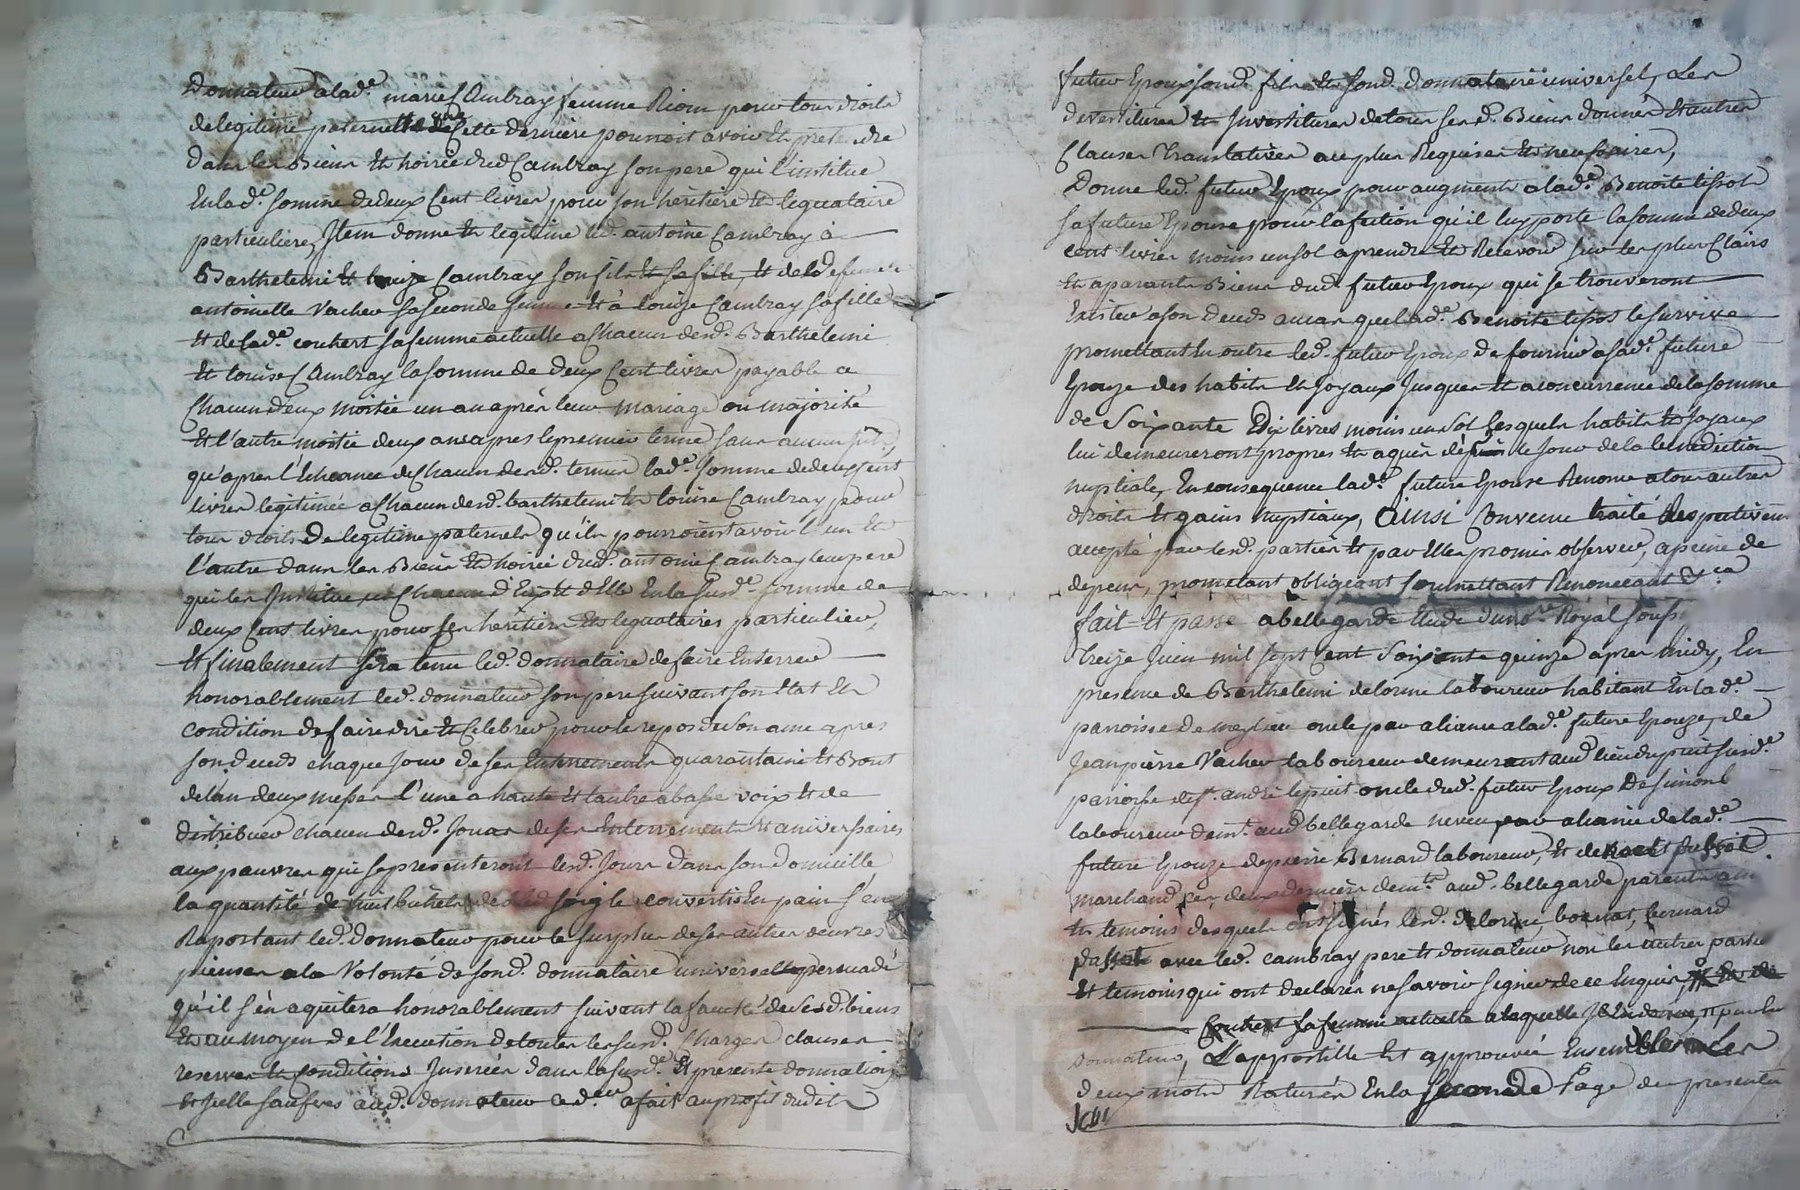 Donnateur a lad.e marie Cambray femme Riom pour tous droits
de legitime paternelle que cette derniere pourroit avoir et pretendre
dans les Biens et hoirie dud Cambray son pere qui l'institue
En lad.e somme de deux Cent livres pour son heritiere et leguataire
particuliere, Item donne et legitime led. antoine Cambray à
Barthelemi et louise Cambray son fils et sa fille, et de lad defunte
antoinette Vacher sa seconde femme et à louise Cambray sa fille
et de lad.e couhert sa femme actuelle a Chacun desd. Barthelemi
et louise Cambray la somme de deux Cent livres payable a
Chacun d'eux moitié un an après leur mariage ou majorité
et l'autre moitié deux ans apres le premier terme sans aucun
qu'apres l'Echeance de Chacun desd. termes lad.e somme de deux Cent
livres legitimée a Chacun desd. barthelemi et louise Cambray pour
tous droits de legitime paternels qu'ils pourroient avoir l'un et
l'autre dans les Biens et hoirie dud. antoine Cambray leur pere
qui les Institue Chacun d'Eux et d'Elle En la susd.e somme de
deux Cent livres pour ses heritiers et leguataires particuliers,
et finalement sera tenu led. donnataire de faire Enterrer
honorablement led. donnateur son pere suivant son Etat et
condition de faire dire et Celebrer pour le repos de son ame apres
son deceds chaque jour de ses Enterrements quarantaine et Bout
de l'an deux messes l'une a haute et l'autre a basse voix et de
distribuer chacun desd. Jours de ses Enterrement et aniversaires
aux pauvres qui se presenteront lesd. Jours dans son domicille
la quantité de huit bichets de bled seigle convertis En pain s'en
Raportant led. donnateur pour le surplus de ses autres oeuvres
pieuses a la Volonté de sond. donnataire universelle persuadé
qu'il s'en aquitera honorablement suivant la faculté de sesd. biens
et au moyen de l'Execution de toutes les susd. Charges clauses
reserves et conditions Inserées dans la susd. et presente donnation
et icelle sauf aud. donnateur a fait au profit dudit
futur Epoux sond. fils et sond. donnataire universel, les
devestitures et Investitures de tous sesd. Biens donnés et autres
Clauses translatives au plus Requises et necessaires,
Donne led. futur Epoux pour augment a lad.e Benoite tissot
sa future Epouse pour l'afection qu'il luy porte la somme de deux
cens livres moins un sol a prendre et Relever sur les plus Clairs
et aparants Biens dud. futur Epoux qui se trouveront
Exister a son deceds au cas que lad.e Benoite tissot le survive
promettant En outre led. futur Epoux de fournir a sad.e future
Epouze des habits et Joyaux Jusques et a concurrence de la somme
de Soixante Dix livres moins un sol lesquels habits et Joyaux
lui demeureront propres et aquis dès le Jour de la benediction
nuptiale, En consequence lad.e future Epouse Renonce a tous autres
droits et gains nuptiaux, Ainsi Convenu traité Respectivement
accepté par lesd. parties et par Elles promis observer, a peine de
depens, prometant obligeant soumettant Renonceant &.ca
fait et passé a bellegarde Etude du no.re Royal souss.
treize Juin mil sept Cent Soixante quinze apres midy, En
presence de Barthelemi delorme laboureur habitant En lad.e
parroisse de meylieu oncle par aliance a lad.e future Epouze, de
Jean pierre Vacher laboureur demeurant aud lieu
parroisse de S.t andré le puit oncle dud. futur Epoux De simon
laboureur dem.t aud bellegarde neveu par aliance de lad.e
future Epouze de pierre Bernard laboureur, et de
marchand ces deux derniers dem.ts aud. bellegarde parents
et temoins desquels ont signés lesd. delorme, Bernard
avec led. cambray pere et donnateur non les autres parties
et temoins qui ont declarés ne savoir signer de ce Enquis,
Couhert sa femme actuelle a laquelle
donnateur, L'appostille Est approuvée Ensemble les
deux mots Raturés En la seconde Page du presente